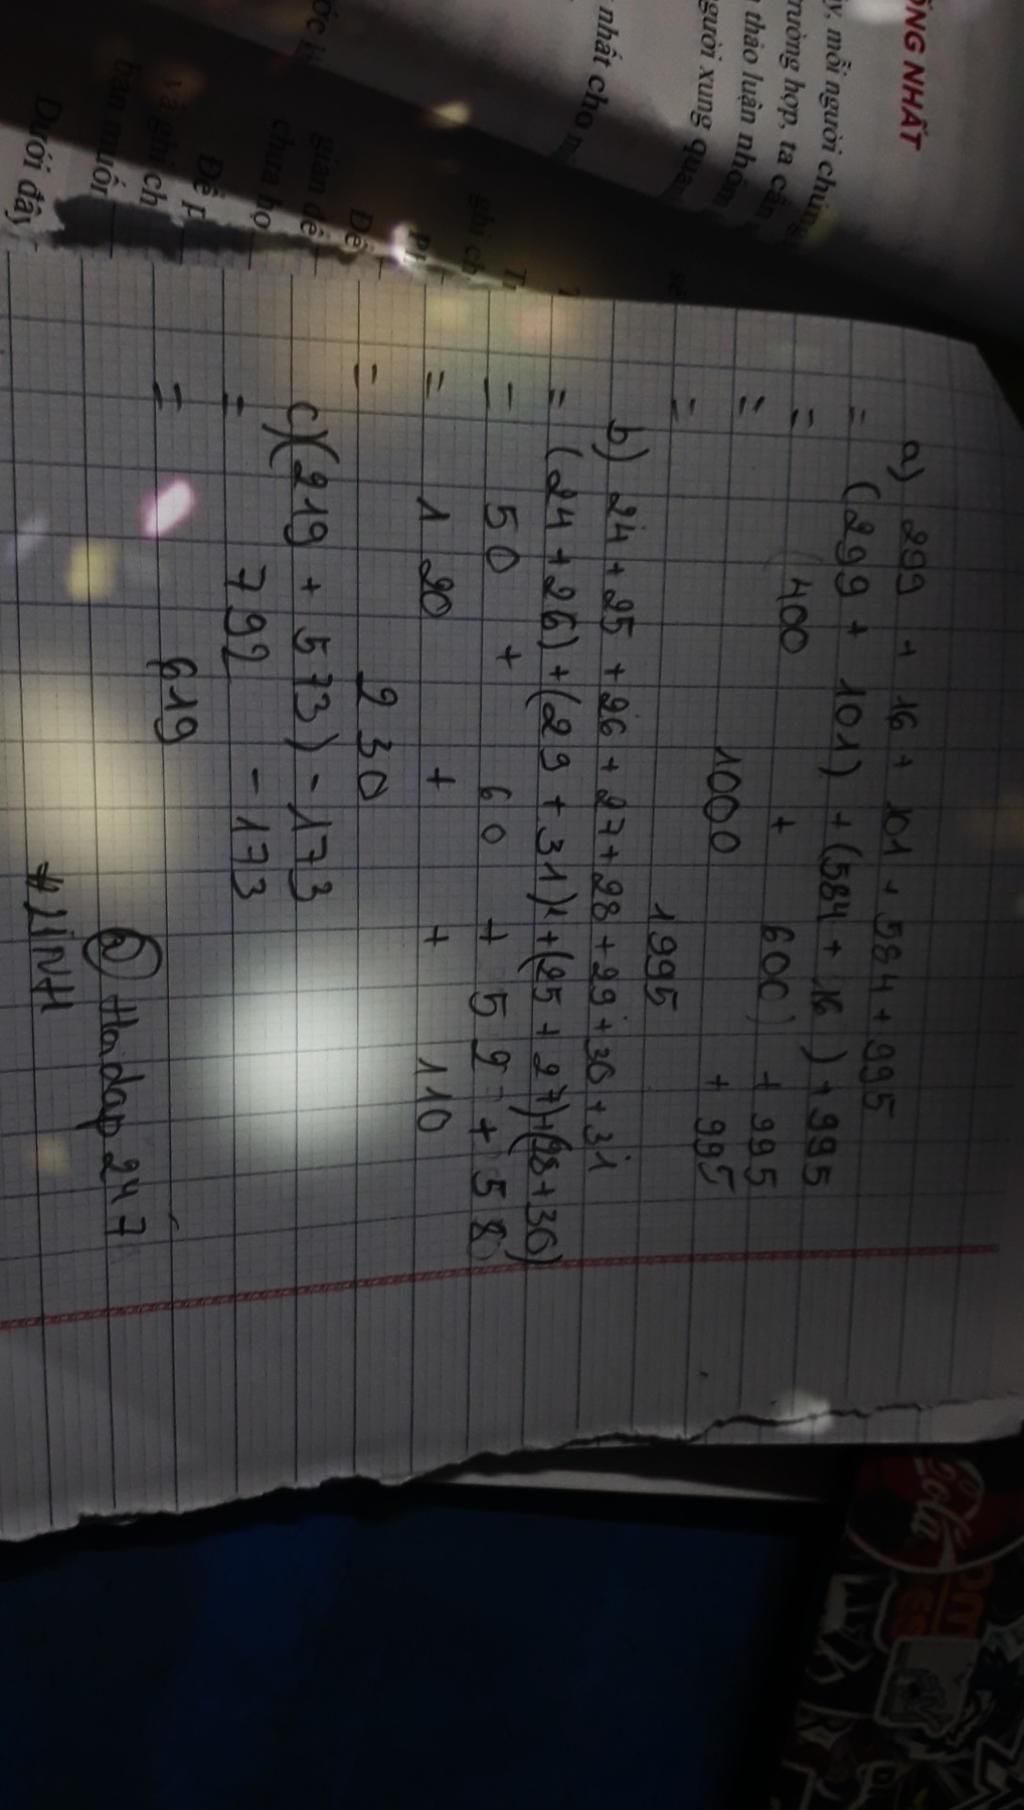 ỐNG NHẤT
y, mỗi người chúng
rường hợp, ta cần
thảo luận nhóm
gười xung qua
nhất cho n
ghi ch
Dễ
giản dề
chưa họ
Để p
và ghi ch
bạn muốn
Dưới đây
a) 299 + 16 + 101 + 584 + 995
= (299 + 101) + (584 + 16) + 995
= 400 + 600 + 995
= 1000 + 995
= 1995
b) 24 + 25 + 26 + 27 + 28 + 29 + 30 + 31
= (24 + 26) + (29 + 31) + (25 + 27) + (28 + 30)
= 50 + 60 + 52 + 58
= 120 + + 110
= 230
c) (219 + 573) - 173
= 792 - 173
= 619
@ Hoidap247
*LINH
Cola